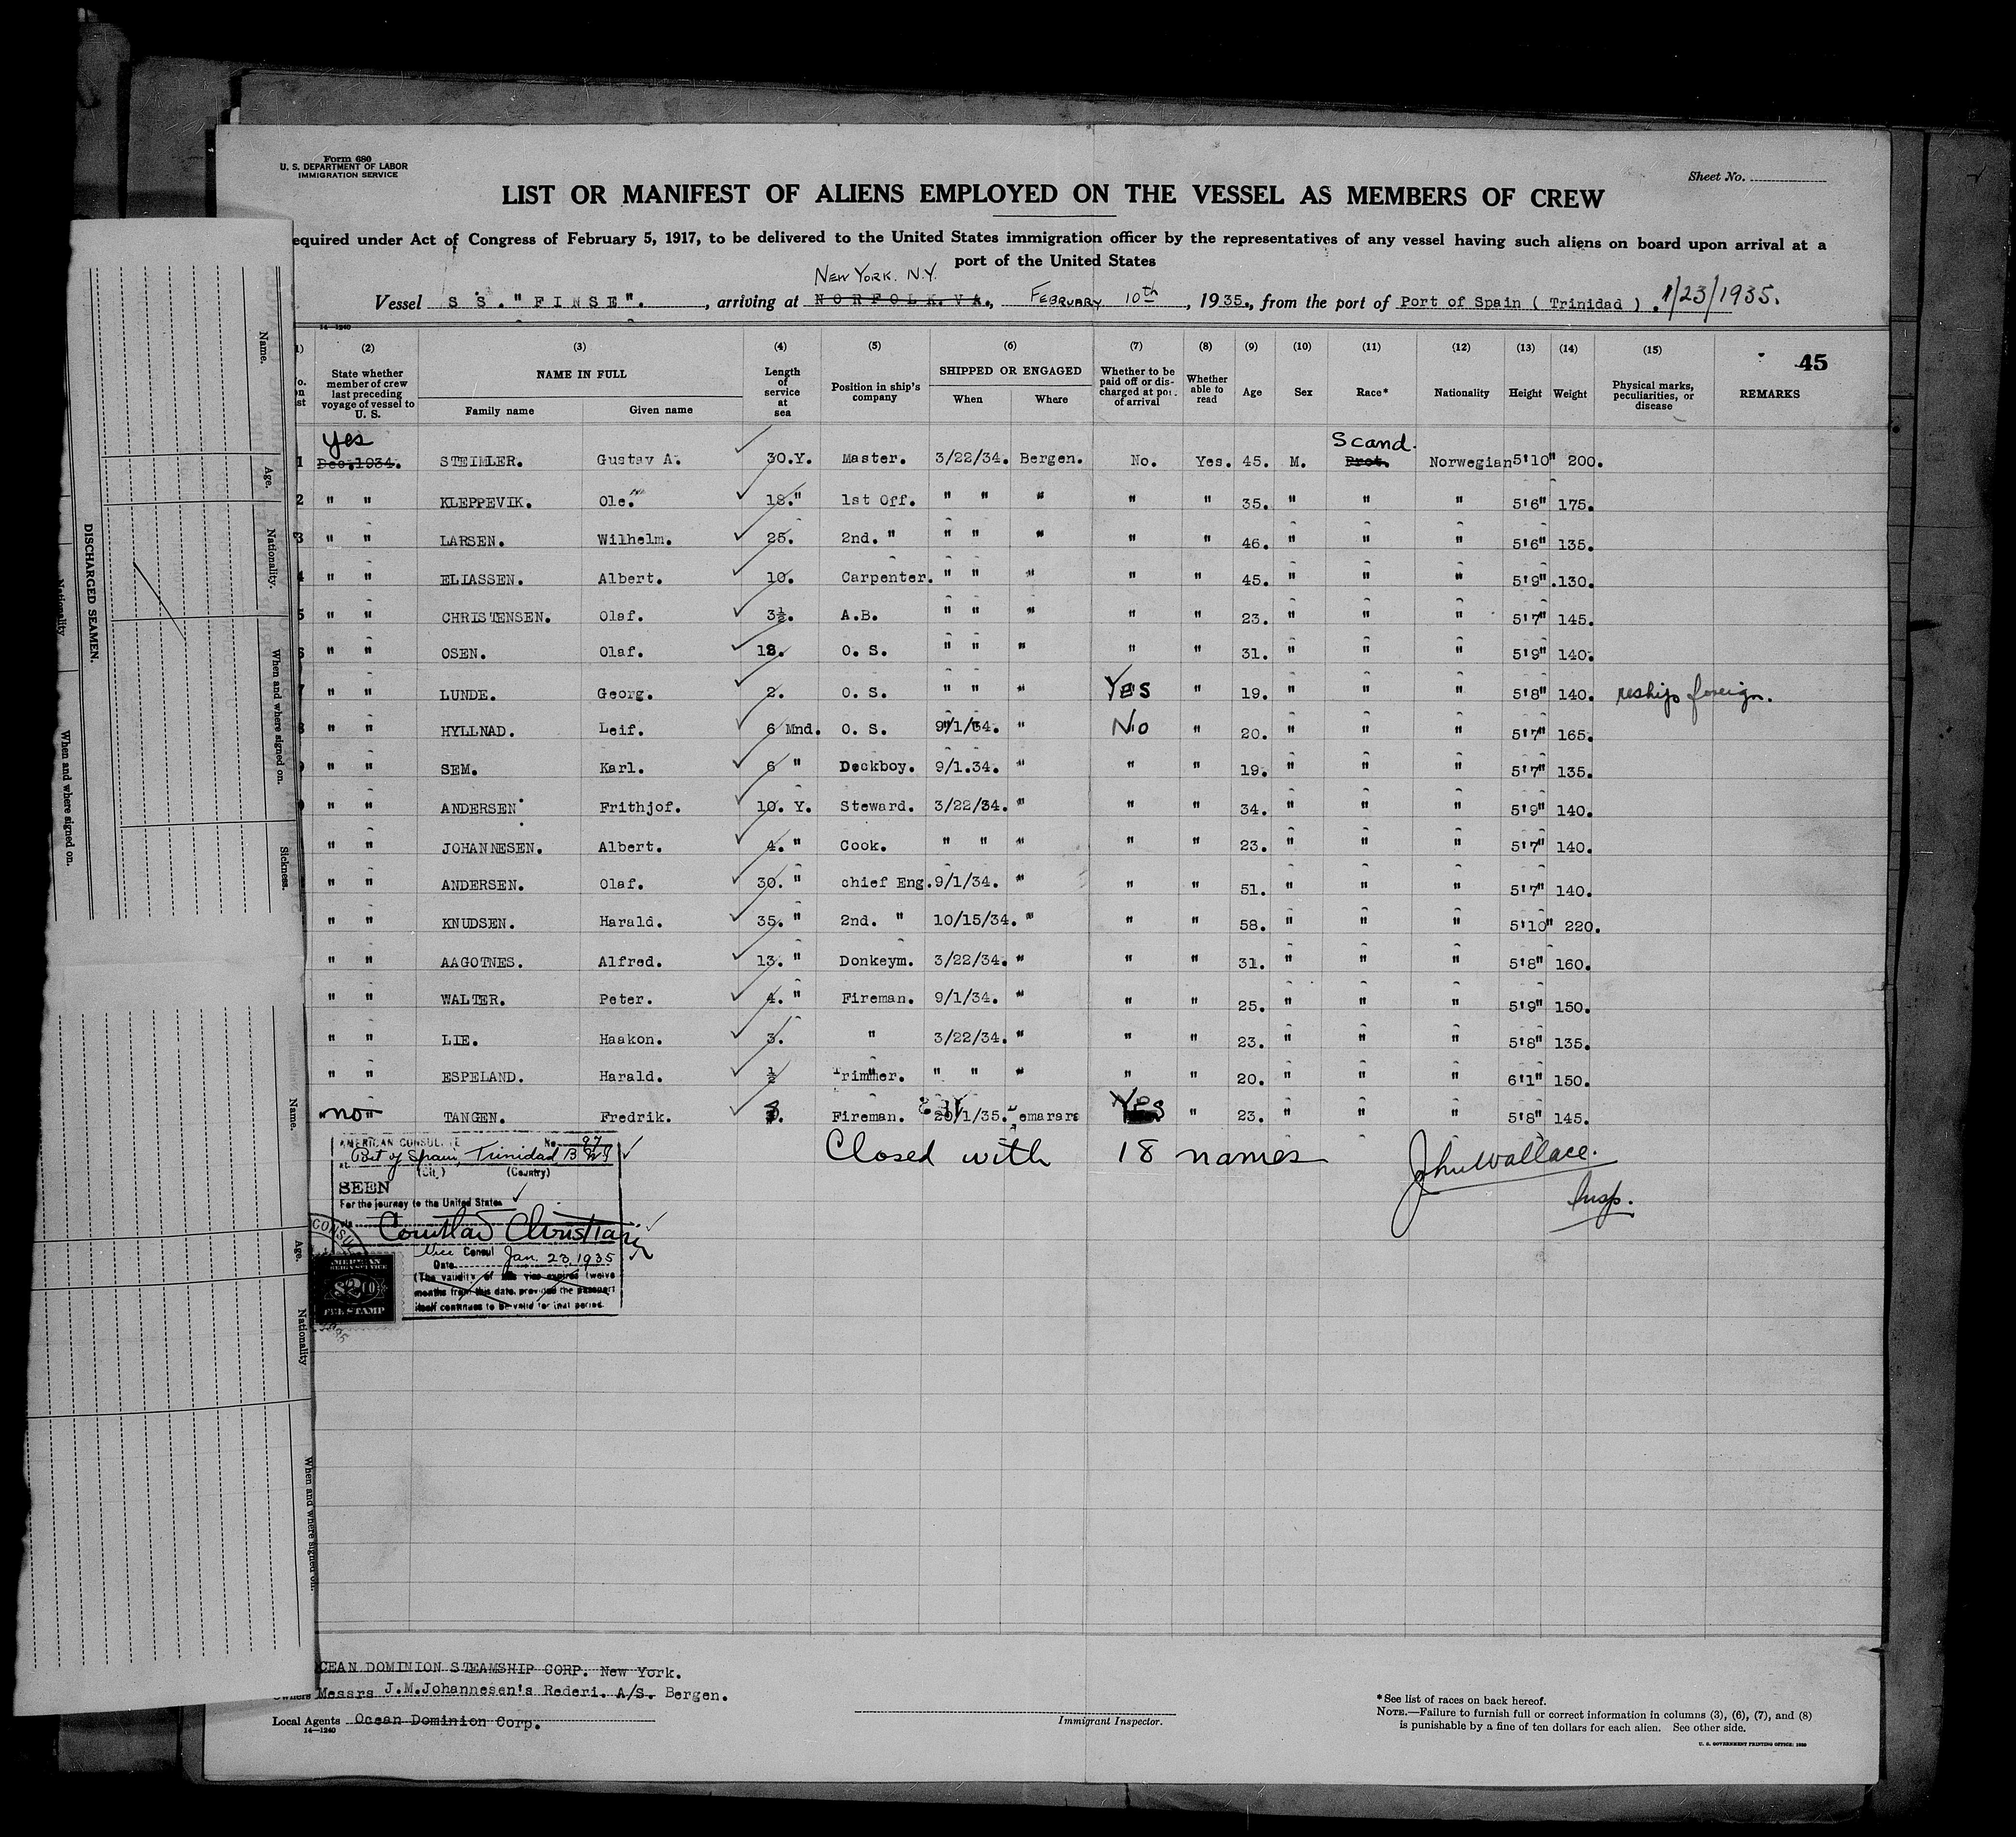 Form 680
U. S. DEPARTMENT OF LABOR
IMMIGRATION SERVICE
Sheet No.
LIST OR MANIFEST OF ALIENS EMPLOYED ON THE VESSEL AS MEMBERS OF CREW
equired under Act of Congress of February 5, 1917, to be delivered to the United States immigration officer by the representatives of any vessel having such aliens on board upon arrival at a
port of the United States
NEW YORK. N.Y.
Vessel S S. "FINSE"., arriving at NORFOLK. VA., FEBRUARY 10th, 1935., from the port of Port of Spain ( Trinidad ) . 1/23/1935.
14—1240
45
(2) (3) (4) (5) (6) (7) (8) (9) (10) (11) (12) (13) (14) (15)
State whether member of crew last preceding voyage of vessel to U. S. | NAME IN FULL | Family name | Given name | Length of service at sea | Position in ship's company | SHIPPED OR ENGAGED | When | Where | Whether to be paid off or discharged at port of arrival | Whether able to read | Age | Sex | Race* | Nationality | Height | Weight | Physical marks, peculiarities, or disease | REMARKS
yes Scand.
1 Dec.1934. STEIMLER. Gustav A. 30.Y. Master. 3/22/34. Bergen. No. Yes. 45. M. Prot. Norwegian 5'10" 200.
2 " " KLEPPEVIK. Ole. 18." 1st Off. " " " " " 35. " " " 5'6" 175.
3 " " LARSEN. Wilhelm. 25. 2nd. " " " " " " 46. " " " 5'6" 135.
4 " " ELIASSEN. Albert. 10. Carpenter. " " " " " 45. " " " 5'9" .130.
5 " " CHRISTENSEN. Olaf. 3½. A.B. " " " " " 23. " " " 5'7" 145.
6 " " OSEN. Olaf. 18. O. S. " " " " " 31. " " " 5'9" 140.
7 " " LUNDE. Georg. 2. O. S. " " " YES " 19. " " " 5'8" 140. reship foreign.
8 " " HYLLNAD. Leif. 6 Mnd. O. S. 9/1/34. " No " 20. " " " 5'7" 165.
" " SEM. Karl. 6 " Deckboy. 9/1.34. " " " 19. " " " 5'7" 135.
" " ANDERSEN Frithjof. 10. Y. Steward. 3/22/34. " " " 34. " " " 5'9" 140.
" " JOHANNESEN. Albert. 4. " Cook. " " " " " 23. " " " 5'7" 140.
" " ANDERSEN. Olaf. 30. " chief Eng. 9/1/34. " " " 51. " " " 5'7" 140.
" " KNUDSEN. Harald. 35. " 2nd. " 10/15/34. " " " 58. " " " 5'10" 220.
" " AAGOTNES. Alfred. 13. " Donkeym. 3/22/34. " " " 31. " " " 5'8" 160.
" " WALTER. Peter. 4. " Fireman. 9/1/34. " " " 25. " " " 5'9" 150.
" " LIE. Haakon. 3. " 3/22/34. " " " 23. " " " 5'8" 135.
" " ESPELAND. Harald. ½ Trimmer. " " " " " 20. " " " 6'1" 150.
"no" TANGEN. Fredrik. Fireman. 20/1/35. emarara YES " 23. " " " 5'8" 145.
Closed with 18 names John Wallace.
Insp.
AMERICAN CONSULATE No. 97
at Port of Spain, Trinidad, B W I
(City) (Country)
SEEN
For the journey to the United States
via
Christiani
Vice Consul
Date Jan. 23, 1935
(The validity of this visa expires twelve
months from this date, provided the passport
itself continues to be valid for that period.
CONSUL
AMERICAN
FOREIGN SERVICE
$2.00
FEE STAMP
OCEAN DOMINION STEAMSHIP CORP. New York.
Owners Messrs J.M.Johannesen's Rederi. A/S. Bergen.
Local Agents Ocean Dominion Corp.
14—1240
Immigrant Inspector.
*See list of races on back hereof.
NOTE.—Failure to furnish full or correct information in columns (3), (6), (7), and (8)
is punishable by a fine of ten dollars for each alien. See other side.
U. S. GOVERNMENT PRINTING OFFICE: 1930
DISCHARGED SEAMEN.
Name.
Age.
Nationality.
When and where signed on.
Sickness.
Nationality
When and where signed on.
Name.
Age.
Nationality
When and where signed on.